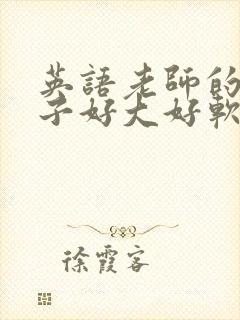 英語老師的
子好大好軟
徐霞客